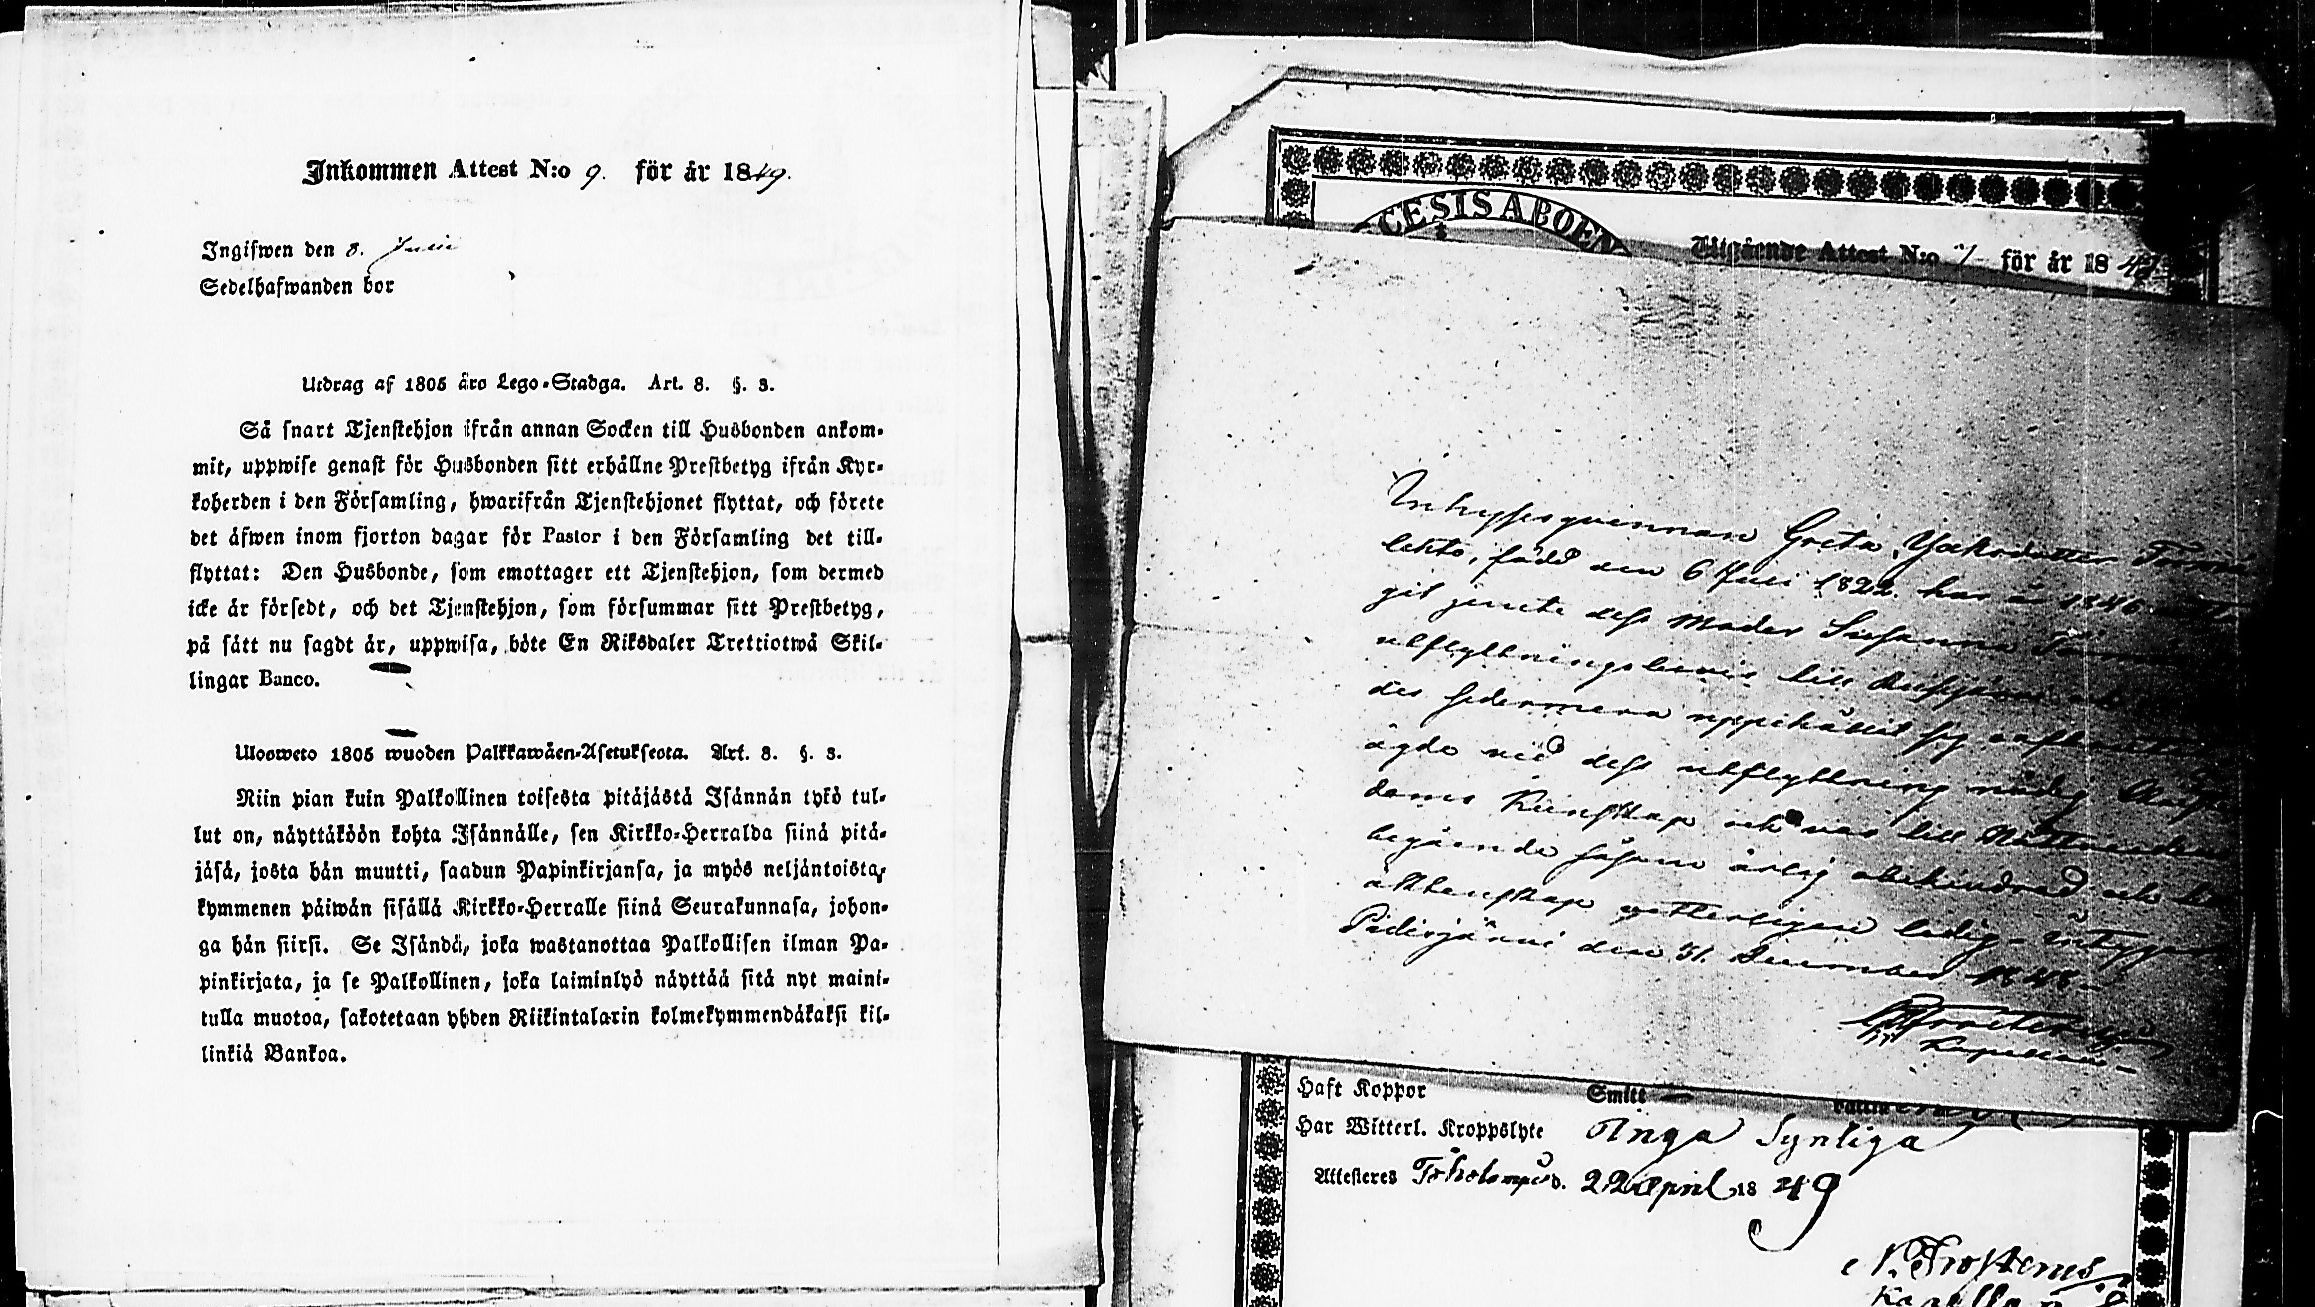 Inkommen Attest N:o 9. för år 1849.
Ingifwen den 8. Juni
Sedelhafwanden bor
Utdrag af 1805 åro Lego-Stadga. Art. 8. §. 3.
Så snart Tjenstehjon ifrån annan Socken till Husbonden ankom-
mit, uppwise genast för Husbonden sitt erhållne Prestbetyg ifrån Kyr-
koherden i den Församling, hwarifrån Tjenstehjonet flyttat, och förete
det äfwen inom fjorton dagar för Pastor i den Församling det till-
flyttat: Den Husbonde, som emottager ett Tjenstehjon, som dermed
icke är försedt, och det Tjenstehjon, som försummar sitt Prestbetyg,
på sätt nu sagdt är, uppwisa, böte En Riksdaler Trettiotwå Skil-
lingar Banco.
Ulosweto 1805 wuoden Palkkawäen-Asetuksesta. Art. 8. §. 3.
Niin pian kuin Palkollinen toisesta pitäjästä Isännän tykö tul-
lut on, näyttäköön kohta Isännälle, sen Kirkko-Herralda siinä pitä-
jäsä, josta hän muutti, saadun Papinkirjansa, ja myös neljäntoista-
kymmenen päiwän sisällä Kirkko-Herralle siinä Seurakunnasa, johon-
ga hän siirsi. Se Isändä, joka wastanottaa Palkollisen ilman Pa-
pinkirjata, ja se Palkollinen, joka laiminlyö näyttää sitä nyt maini-
tulla muotoa, sakotetaan yhden Riikintalarin kolmekymmendäkaksi kil-
linkiä Bankoa.
CESIS ABOEN
Utgående Attest N:o 7 för år 18
Inhysesqvinnan Greta Jakobsdotter
lehto, född den 6 Juli 1822. har år 1846
git jemte dess Moder Susanna
utflyttningsbevis till
des sedermera uppehållit sig
ägde vid dess utflyttning nödig
doms Kunskap och var till Nattvarden
begående såsom ärlig obehindrad och till
äktenskap ledig - intygar
Pidisjärvi den 31. December 1848 -
Kapellan -
Haft Koppor Smitt
Har Witterl. Kroppslyte Inga Synliga
Attesteres Toholampi d. 22 April 1849
N. Frosterus